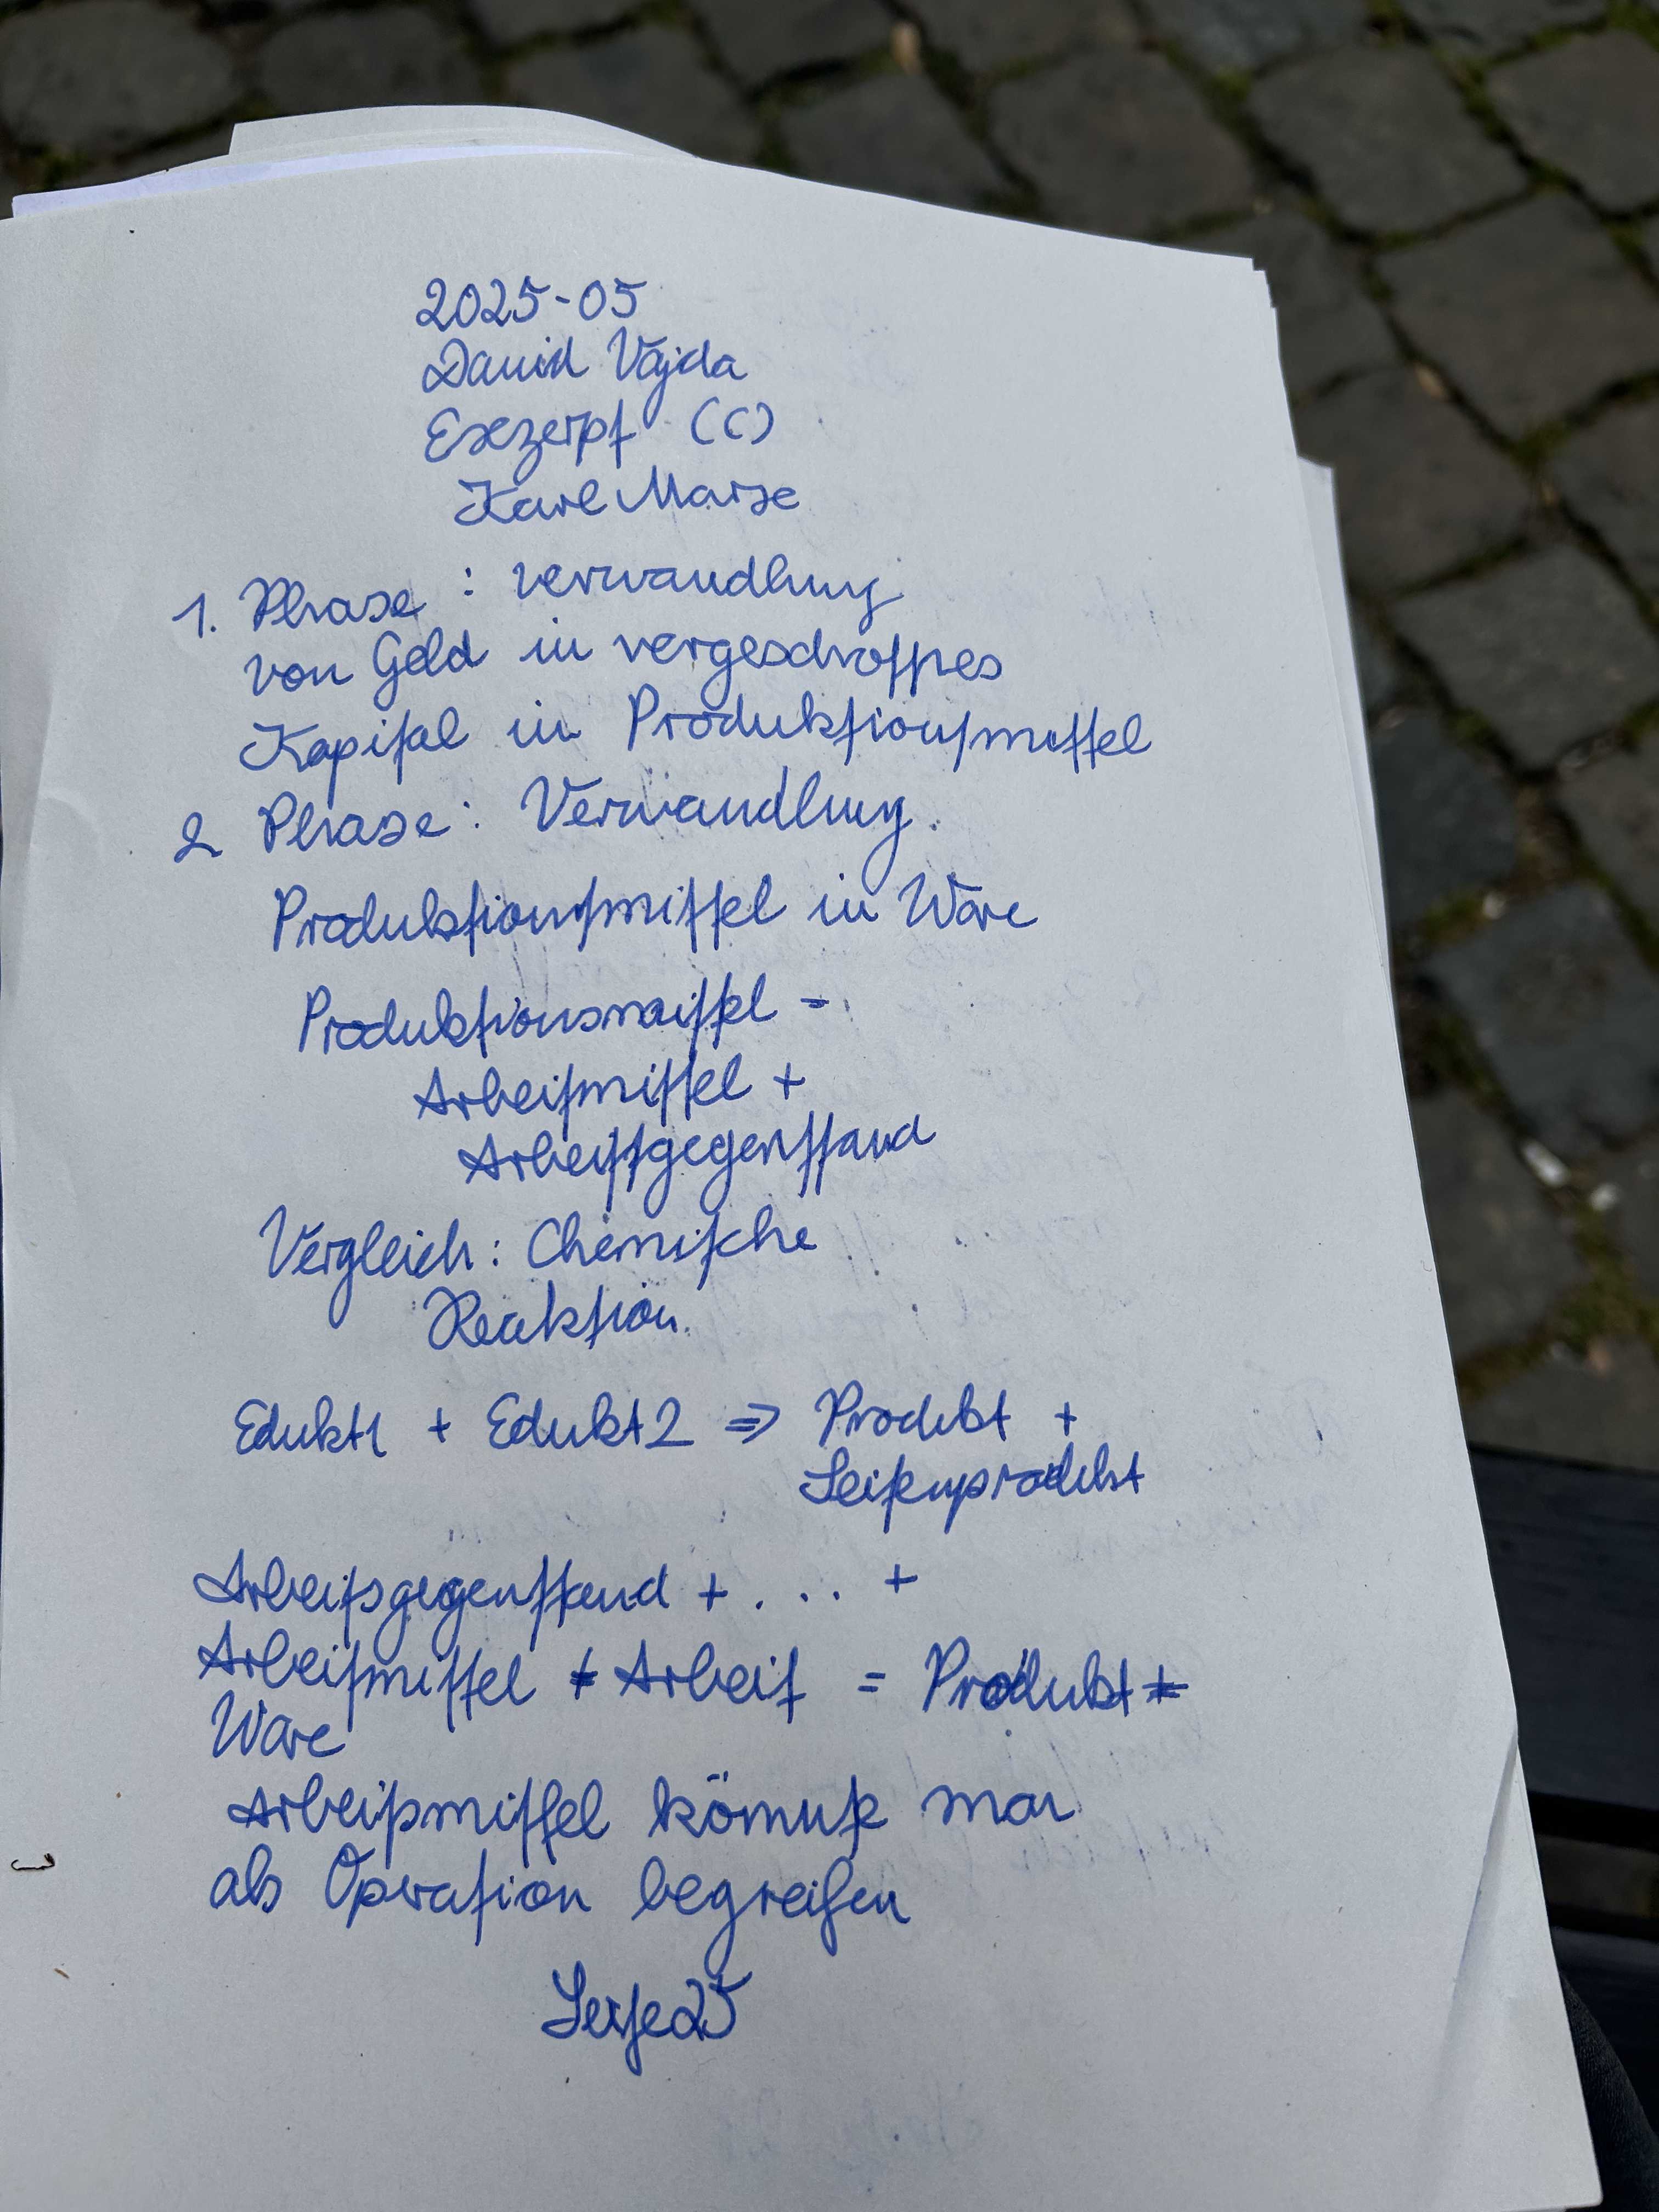 2025-05
David Vajda
Exezerpt (C)
Karl Marx
1. Phrase : verwandlung
von Geld in vergeschroffres
Kapital in Produktionsmittel
2 Phrase : Verwandlung.
Produktionsmittel in Ware
Produktionsmittel =
Arbeitsmittel +
Arbeitsgegenstand
Vergleich : Chemische
Reaktion.
Edukt1 + Edukt2 => Produkt +
Seitenprodukt
Arbeitsgegenstand + . . . +
Arbeitsmittel + Arbeit = Produkt +
Ware
Arbeitsmittel könnte man
als Operation begreifen
Seite 25